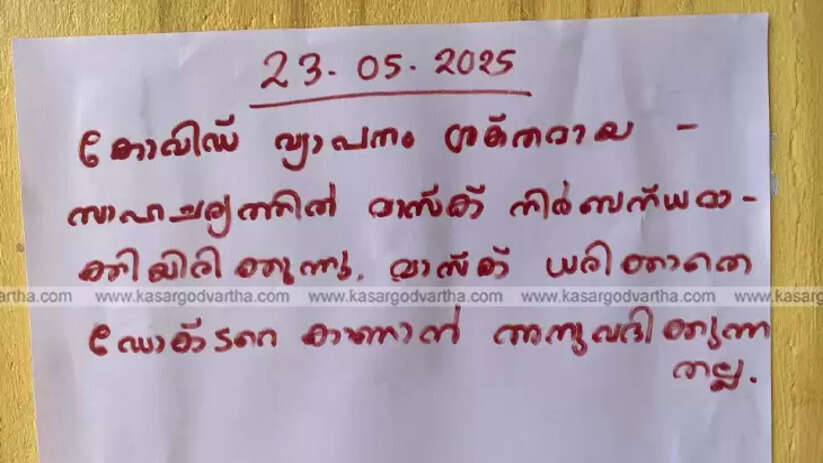 23.05.2025
കോവിഡ് വ്യാപനം ശക്തമായ -
സാഹചര്യത്തിൽ മാസ്ക് നിർബന്ധമാ-
ക്കിയിരിക്കുന്നു. മാസ്ക് ധരിക്കാതെ
www.kasargodvartha.com www.kasargodvartha.com www.kasargodvartha.com
ഡോക്ടറെ കാണാൻ അനുവദിക്കുന്ന
തല്ല.